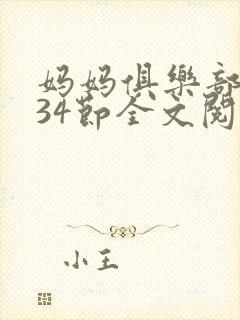 妈妈俱樂部
34節全文閱
小王